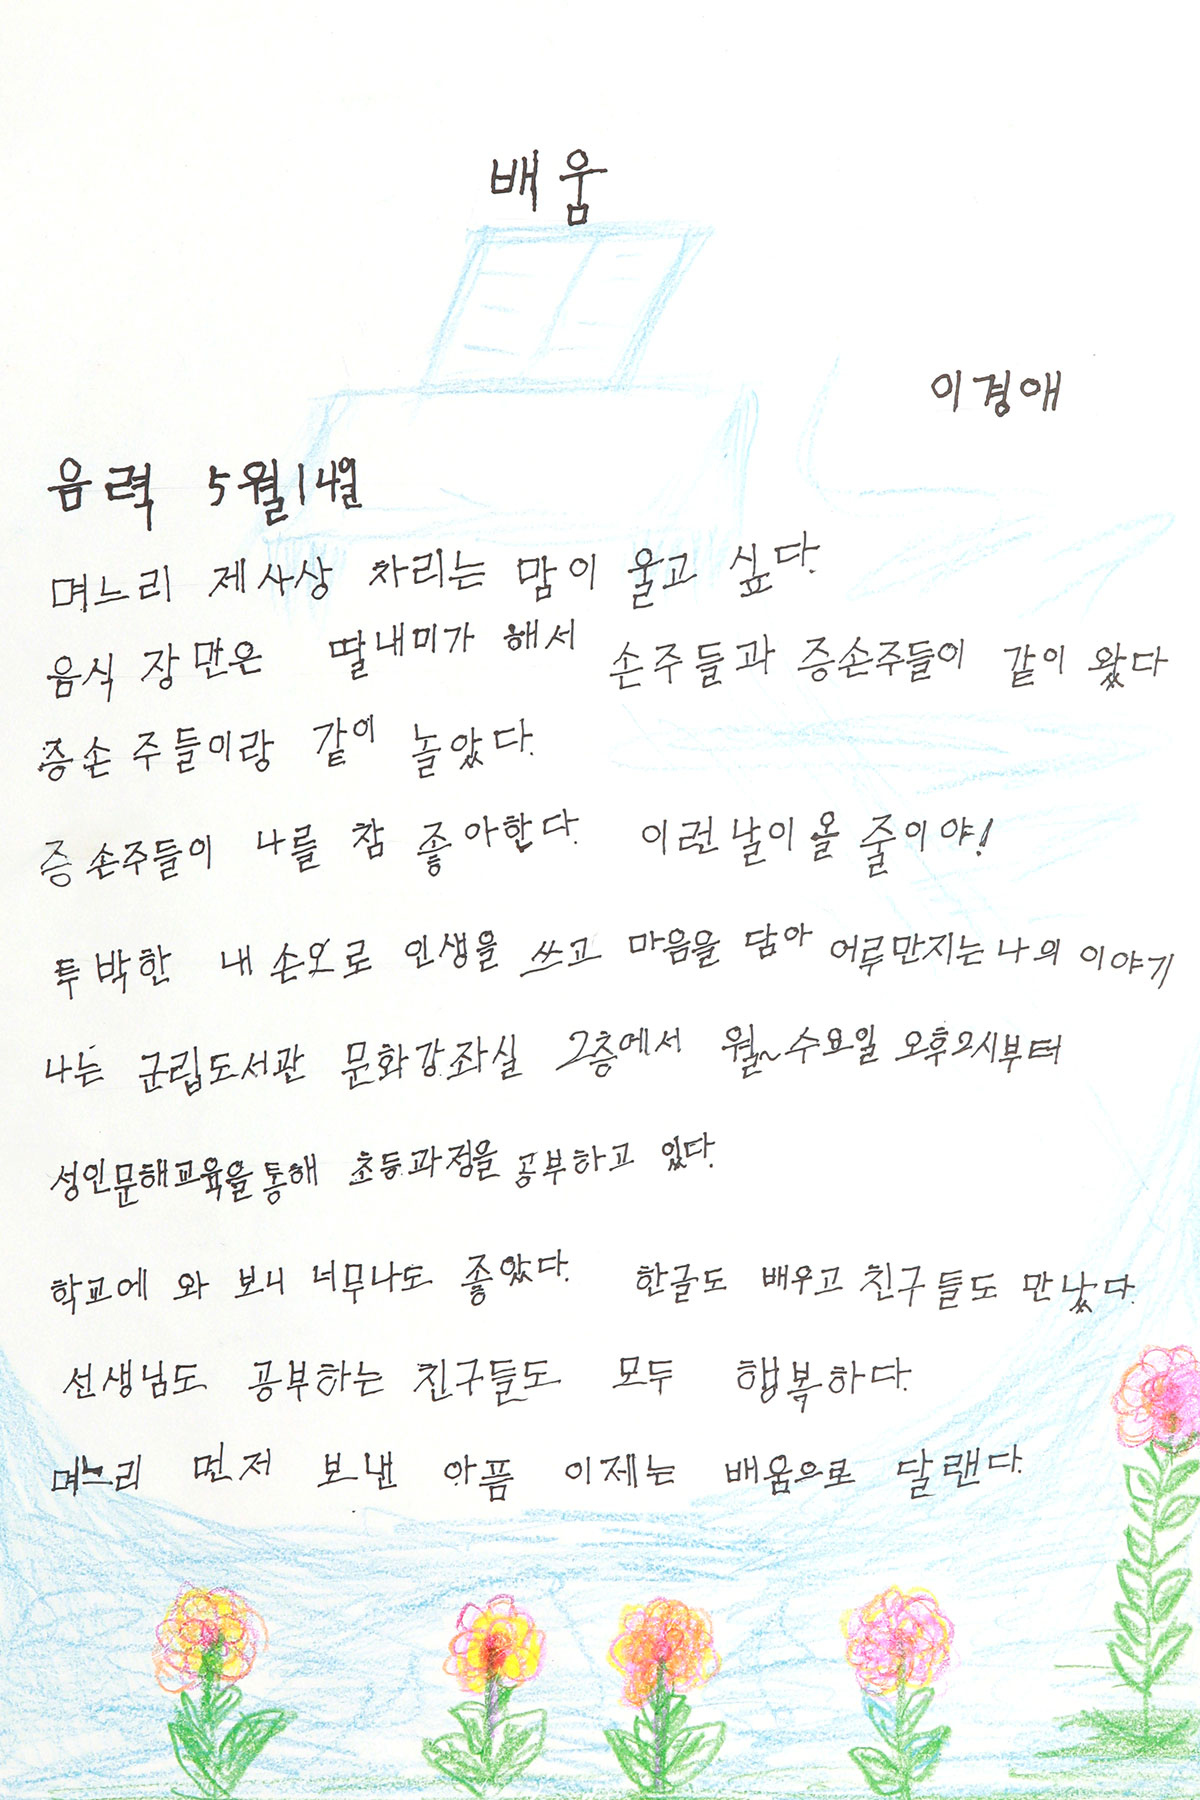 배움
이경애
음력 5월14일
며느리 제사상 차리는 맘이 울고 싶다.
음식 장만은 딸내미가 해서 손주들과 증손주들이 같이 왔다
증손주들이랑 같이 놀았다.
증손주들이 나를 참 좋아한다. 이런날이 올 줄이야!
투박한 내 손으로 인생을 쓰고 마음을 담아 어루만지는 나의 이야기
나는 군립도서관 문화강좌실 2층에서 월~수요일 오후2시부터
성인문해교육을 통해 초등과정을 공부하고 있다.
학교에 와 보니 너무나도 좋았다. 한글도 배우고 친구들도 만났다.
선생님도 공부하는 친구들도 모두 행복하다.
며느리 먼저 보낸 아픔 이제는 배움으로 달랜다.